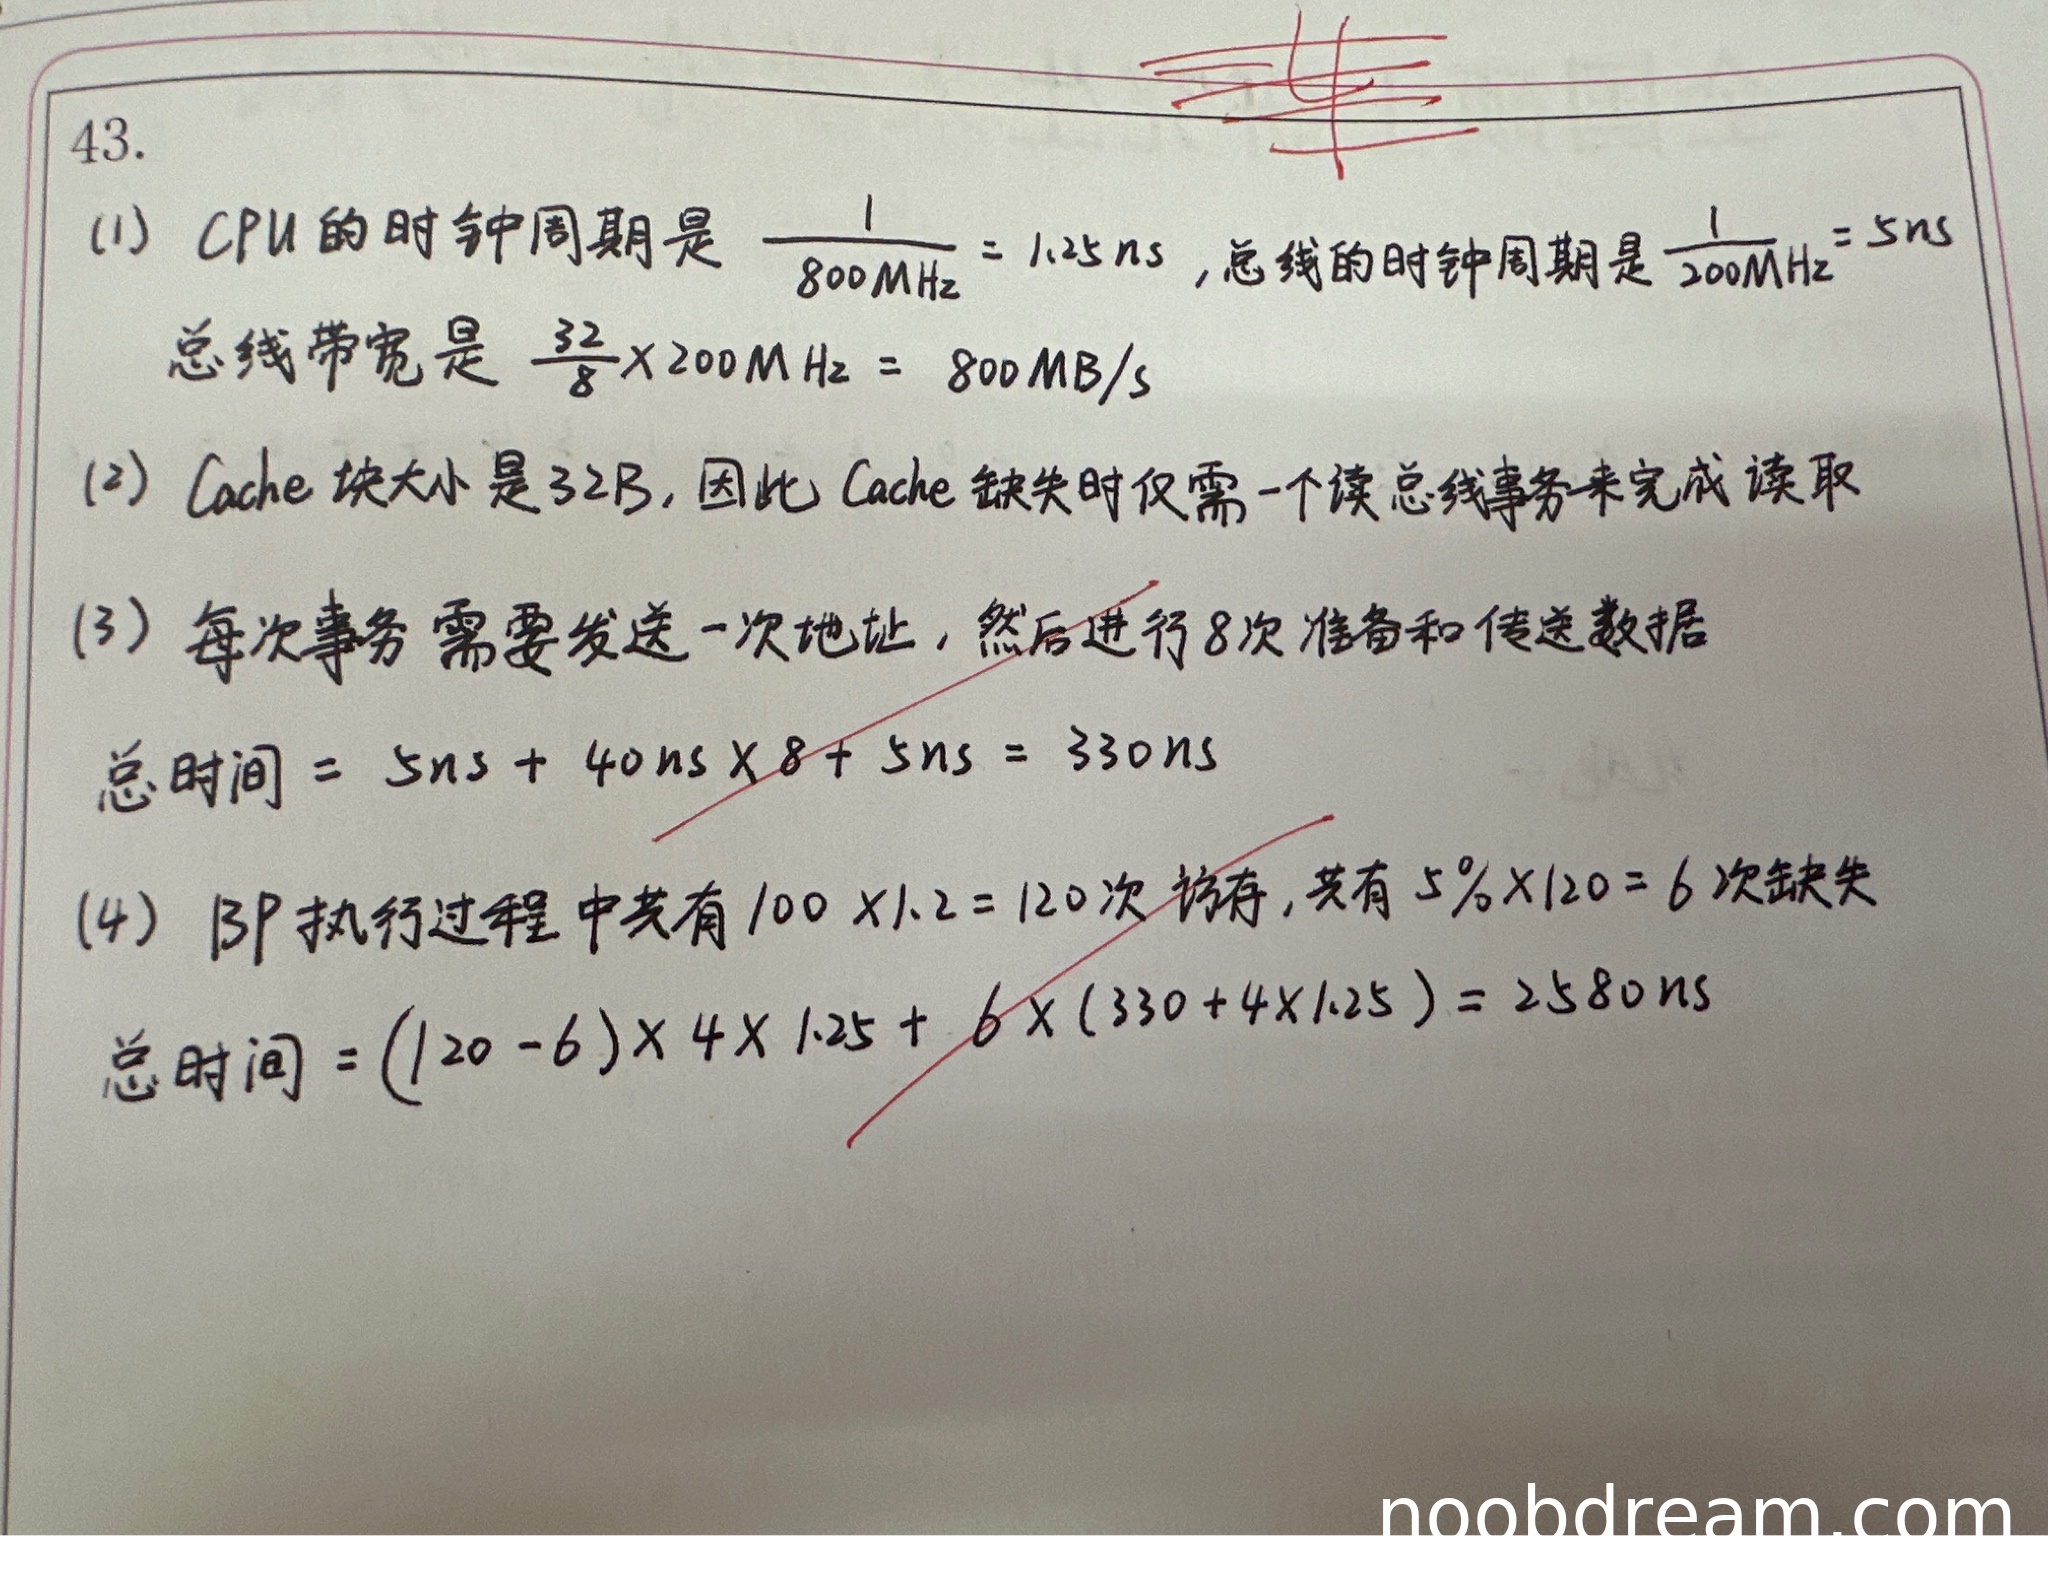 43.
(1) CPU的时钟周期是 1/800MHz = 1.25ns，总线的时钟周期是 1/200MHz = 5ns
总线带宽是 32/8 × 200MHz = 800MB/s
(2) Cache块大小是32B，因此Cache缺失时仅需一个读总线事务来完成读取
(3) 每次事务需要发送一次地址，然后进行8次准备和传送数据
总时间 = 5ns + 40ns × 8 + 5ns = 330ns
(4) BP执行过程中共有100×1.2=120次访存，共有5%×120=6次缺失
总时间 = (120-6)×4×1.25 + 6×(330+4×1.25) = 2580ns
noobdream.com